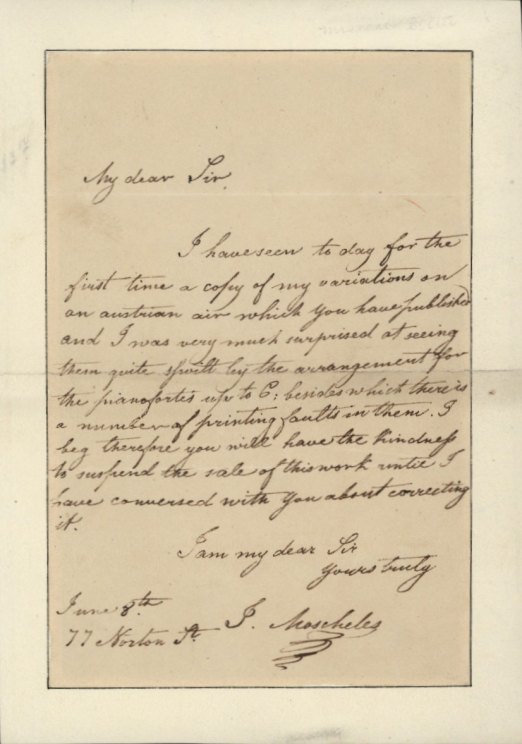 My dear Sir.
I have seen to day for the
first time a copy of my variations on
an austrian air which you have published
and I was very much surprised at seeing
them quite spoilt by the arrangement for
the pianofortes up to C: besides which there is
a number of printing faults in them. I
beg therefore you will have the kindness
to suspend the sale of this work until I
have conversed with you about correcting
it.
I am my dear Sir
yours truly
June 8th
J. Moscheles
77 Norton St